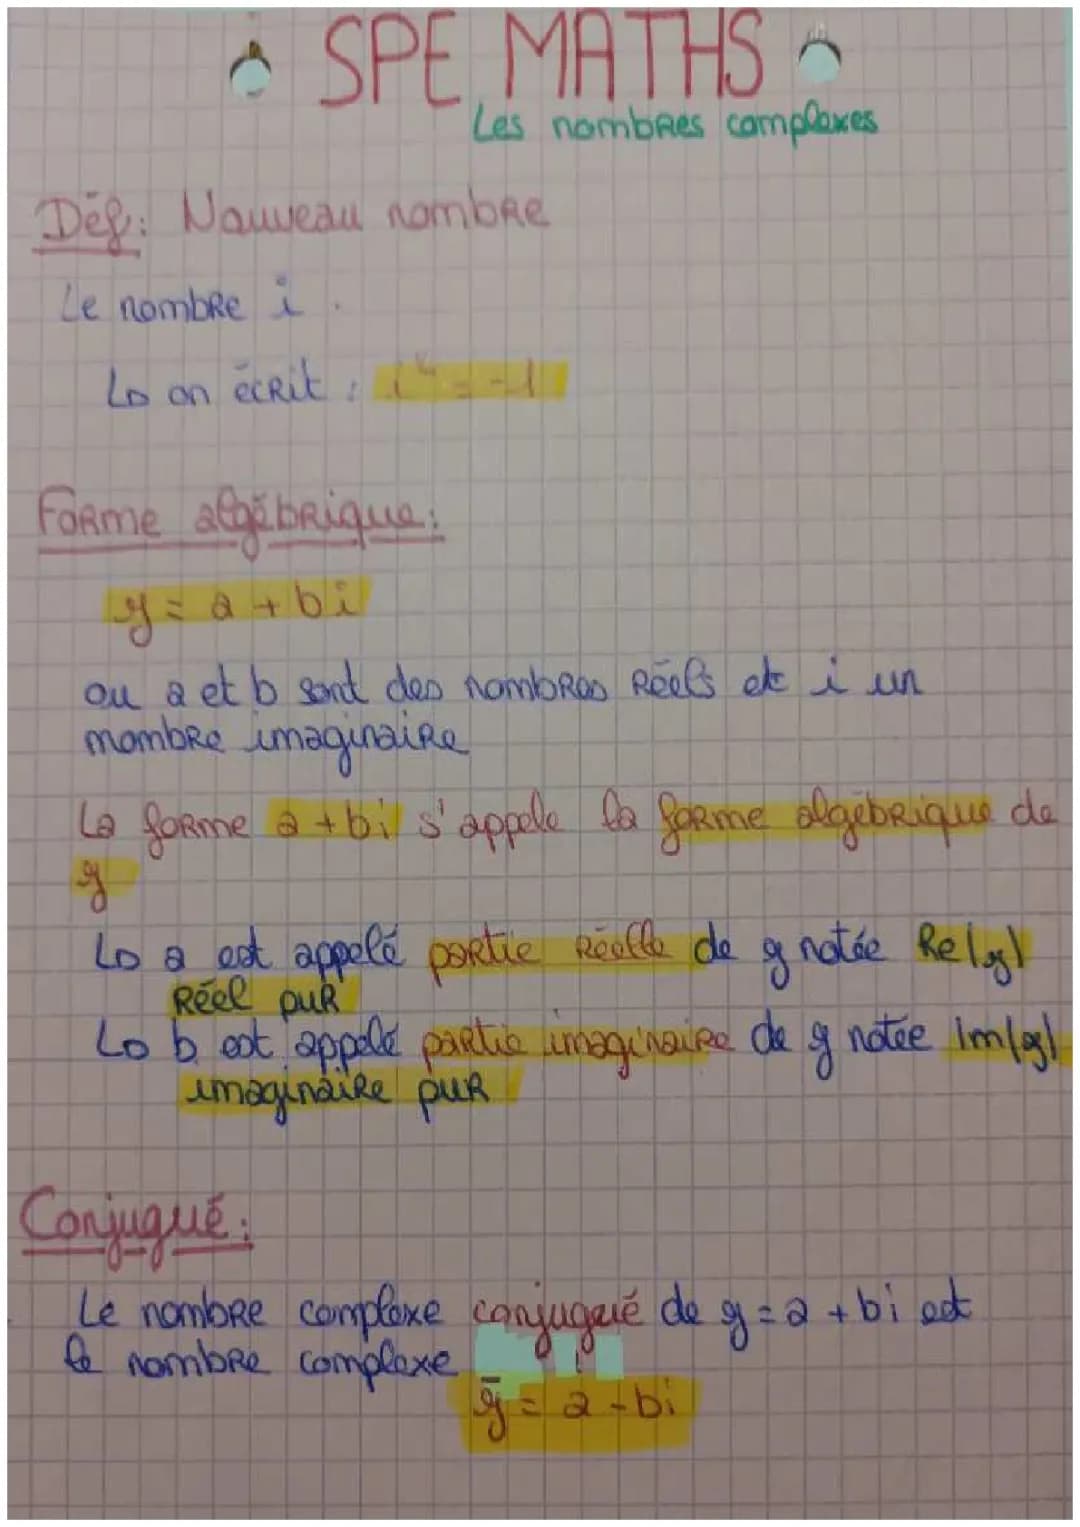 SPE MATHS
Les nombres complexes
Déf: Nouveau nombre
Le nombre i.
↳ on écrit : i² = -1
Forme algébrique:
z = a + bi
ou a et b sont des nombres réels et i un
nombre imaginaire
La forme a + bi s'appele la forme algébrique de
z
↳ a est appelé partie réelle de z notée Re(z)
Réel pur
↳ b est appelé partie imaginaire de z notée Im(z)
imaginaire pur
Conjugué:
Le nombre complexe conjugué de z = a + bi est
le nombre complexe
z̄ = a - bi